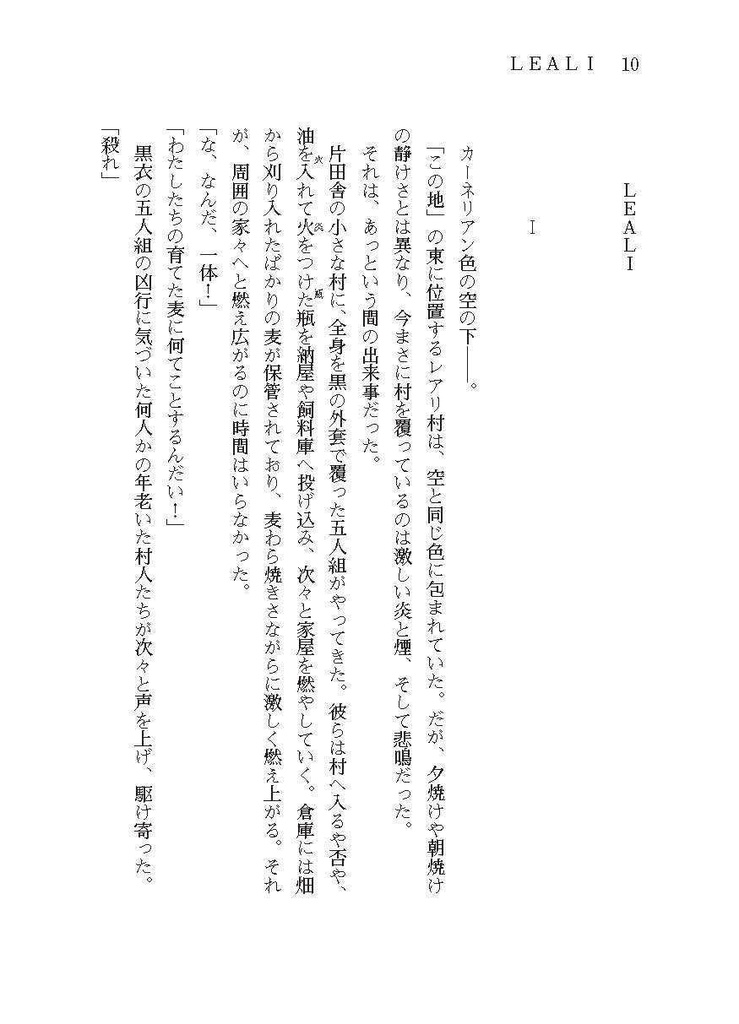 LEALI 10
LEALI
I
カーネリアン色の空の下――。
「この地」の東に位置するレアリ村は、空と同じ色に包まれていた。だが、夕焼けや朝焼け
の静けさとは異なり、今まさに村を覆っているのは激しい炎と煙、そして悲鳴だった。
それは、あっという間の出来事だった。
片田舎の小さな村に、全身を黒の外套で覆った五人組がやってきた。彼らは村へ入るや否や、
油を入れて火をつけた瓶を納屋や飼料庫へ投げ込み、次々と家屋を燃やしていく。倉庫には畑
から刈り入れたばかりの麦が保管されており、麦わら焼きさながらに激しく燃え上がる。それ
が、周囲の家々へと燃え広がるのに時間はいらなかった。
「な、なんだ、一体！」
「わたしたちの育てた麦に何てことするんだい！」
黒衣の五人組の凶行に気づいた何人かの年老いた村人たちが次々と声を上げ、駆け寄った。
「殺れ」